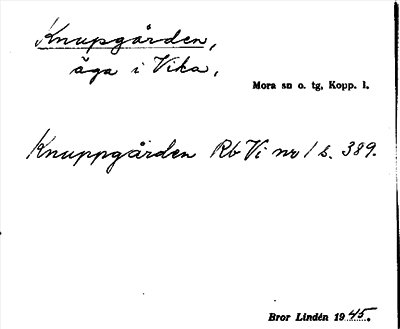 Knupgården,
äga i Vika,
Mora sn o. tg, Kopp. l.
Knuppgården Rb Vi nr 1 s. 389.
Bror Lindén 1945.